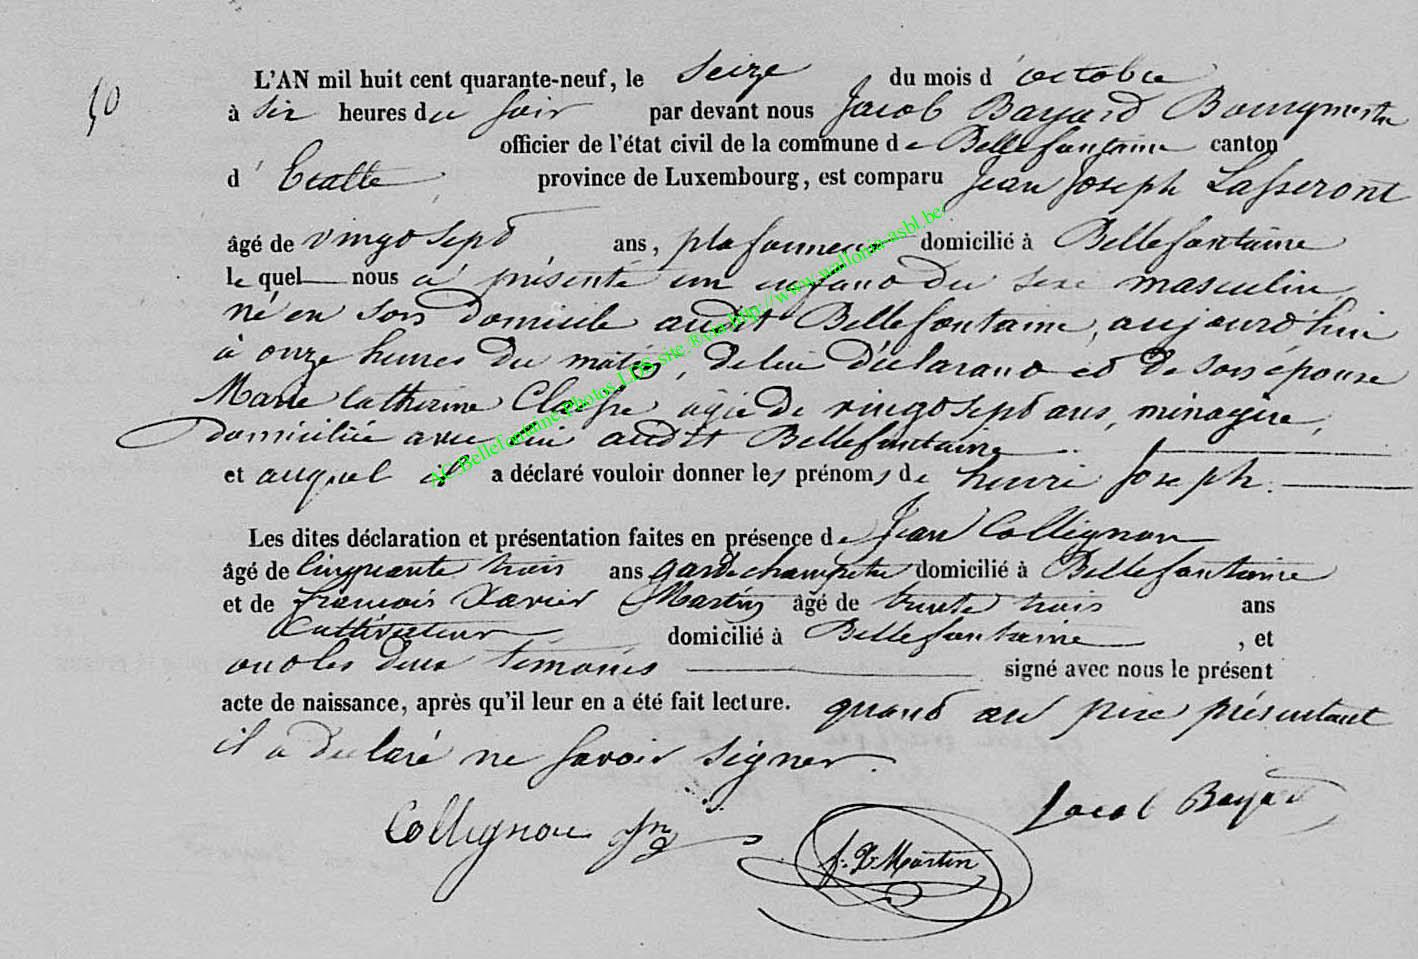 50
L'AN mil huit cent quarante-neuf, le seize du mois d'octobre
à six heures du soir par devant nous Jacob Bayard Bourgmestre
officier de l'état civil de la commune de Bellefontaine canton
d'Etalle province de Luxembourg, est comparu Jean Joseph Lasseront
âgé de vingt sept ans, plafonneur domicilié à Bellefontaine
le quel nous a présenté un enfant du sexe masculin
né en son domicile audit Bellefontaine, aujourd'hui
à onze heures du matin, de lui déclarant et de son épouse
Marie Catherine âgée de vingt sept ans, ménagère,
domiciliée avec lui audit Bellefontaine
et auquel il a déclaré vouloir donner les prénoms de henri Joseph.
Les dites déclaration et présentation faites en présence de Jean Collignon
âgé de Cinquante trois ans garde champetre domicilié à Bellefontaine
et de françois Xavier Martin âgé de trente trois ans
Cultivateur, domicilié à Bellefontaine, et
ont les deux temoins signé avec nous le présent
acte de naissance, après qu'il leur en a été fait lecture. quant au père présentant
il a déclaré ne savoir signer.
Jacob Bayard
Collignon jn
f. X. Martin
AC Bellefontaine Photos LDS site ® via http://www.wallonia-asbl.be